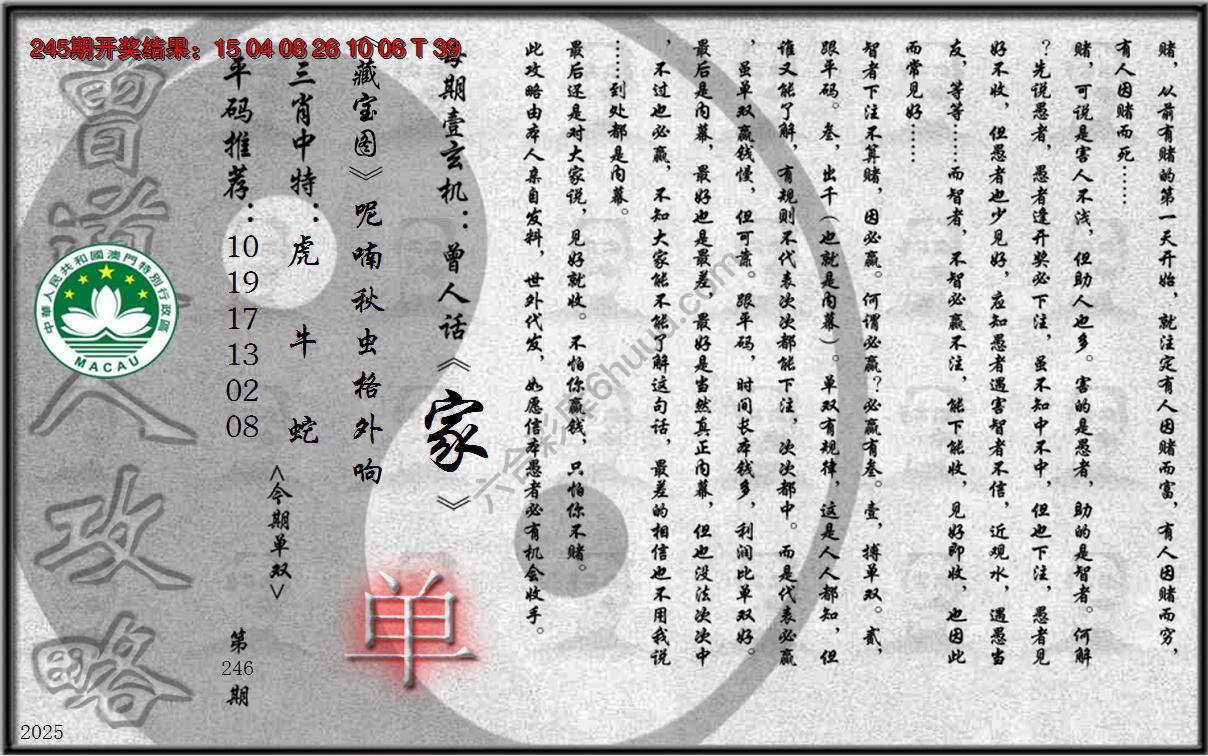 245期开奖结果：15 04 08 26 10 06 T 39
赌，从前有赌的第一天开始，就注定有人因赌而富，有人因赌而穷，
有人因赌而死……
赌，可说是害人不浅，但助人也多。害的是愚者，助的是智者。何解
？先说愚者，愚者逢开奖必下注，虽不知中不中，但也下注，愚者见
好不收，但愚者也少见好，应知愚者遇害智者不信，近观水，遇愚当
友，等等……而智者，不智必赢不注，能下能收，见好即收，也因此
而常见好……
智者下注不算赌，因必赢。何谓必赢？必赢有叁。壹，搏单双。贰，
跟平码。叁，出千（也就是内幕）。单双有规律，这是人人都知，但
谁又能了解，有规则不代表次次都能下注，次次都中。而是代表必赢
，虽单双赢钱慢，但可靠。跟平码，时间长本钱多，利润比单双好。
最后是内幕，最好也是最差，最好是当然真正内幕，但也没法次次中
，不过也必赢，不知大家能不能了解这句话，最差的相信也不用我说
……到处都是内幕。
最后还是对大家说，见好就收。不怕你赢钱，只怕你不赌。
此攻略由本人亲自发料，世外代发，如愿信本愚者必有机会收手。
每期壹玄机：曾人话《家》
《藏宝图》呢喃秋虫格外响
三肖中特：虎 牛 蛇
平码推荐：10 19 17 13 02 08
<今期单双>
单
第246期
曾道人攻略
中華人民共和國澳門特別行政區
MACAU
六合彩库6huuu.com
2025